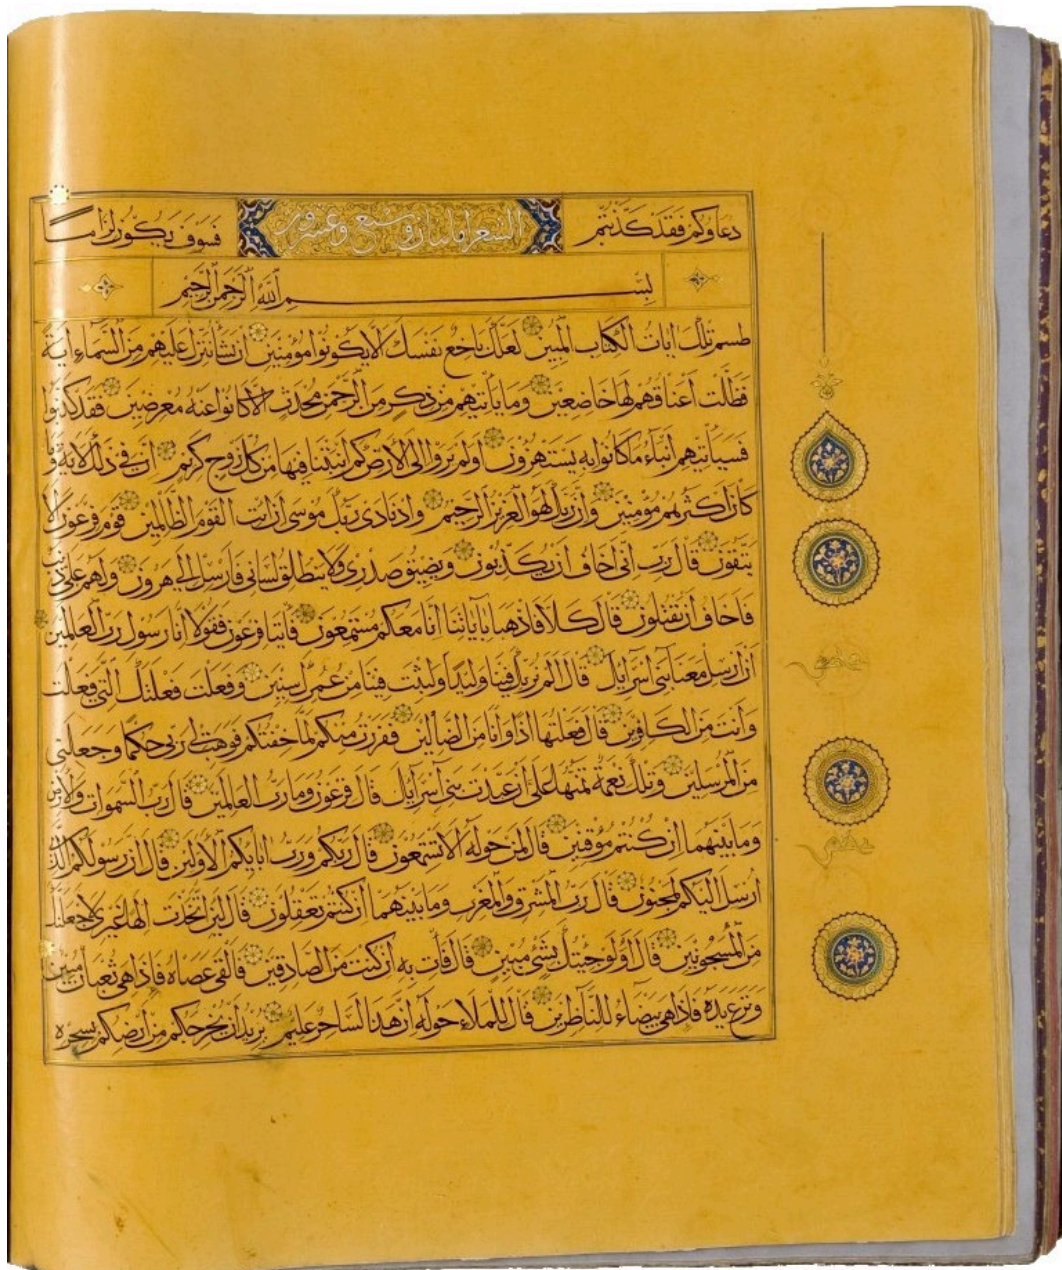 دعاوكم فقد كذبتم الشعرا مايتان وسبع وعشرون فسوف يكون لزاما
بسم الله الرحمن الرحيم
طسم تلك ايات الكتاب المبين لعلك باخع نفسك الا يكونوا مؤمنين ان نشا ننزل عليهم من السماء اية
فظلت اعناقهم لها خاضعين وما ياتيهم من ذكر من الرحمن محدث الا كانوا عنه معرضين فقد كذبوا
فسياتيهم انباء ما كانوا به يستهزؤن اولم يروا الى الارض كم انبتنا فيها من كل زوج كريم ان في ذلك لاية وما
كان اكثرهم مؤمنين وان ربك لهو العزيز الرحيم واذ نادى ربك موسى ان ائت القوم الظالمين قوم فرعون الا
يتقون قال رب اني اخاف ان يكذبون ويضيق صدري ولا ينطلق لساني فارسل الى هرون ولهم علي ذنب
فاخاف ان يقتلون قال كلا فاذهبا باياتنا انا معكم مستمعون فاتيا فرعون فقولا انا رسول رب العالمين
ان ارسل معنا بني اسرايل قال الم نربك فينا وليدا ولبثت فينا من عمرك سنين وفعلت فعلتك التي فعلت
وانت من الكافرين قال فعلتها اذا وانا من الضالين ففررت منكم لما خفتكم فوهب لي ربي حكما وجعلني
من المرسلين وتلك نعمة تمنها علي ان عبدت بني اسرايل قال فرعون وما رب العالمين قال رب السموات والارض
وما بينهما ان كنتم موقنين قال لمن حوله الا تستمعون قال ربكم ورب ابايكم الاولين قال ان رسولكم الذي
ارسل اليكم لمجنون قال رب المشرق والمغرب وما بينهما ان كنتم تعقلون قال لين اتخذت الها غيري لاجعلنك
من المسجونين قال اولو جئتك بشئ مبين قال فات به ان كنت من الصادقين فالقى عصاه فاذا هي ثعبان مبين
ونزع يده فاذا هي بيضاء للناظرين قال للملاء حوله ان هذا لساحر عليم يريد ان يخرجكم من ارضكم بسحره